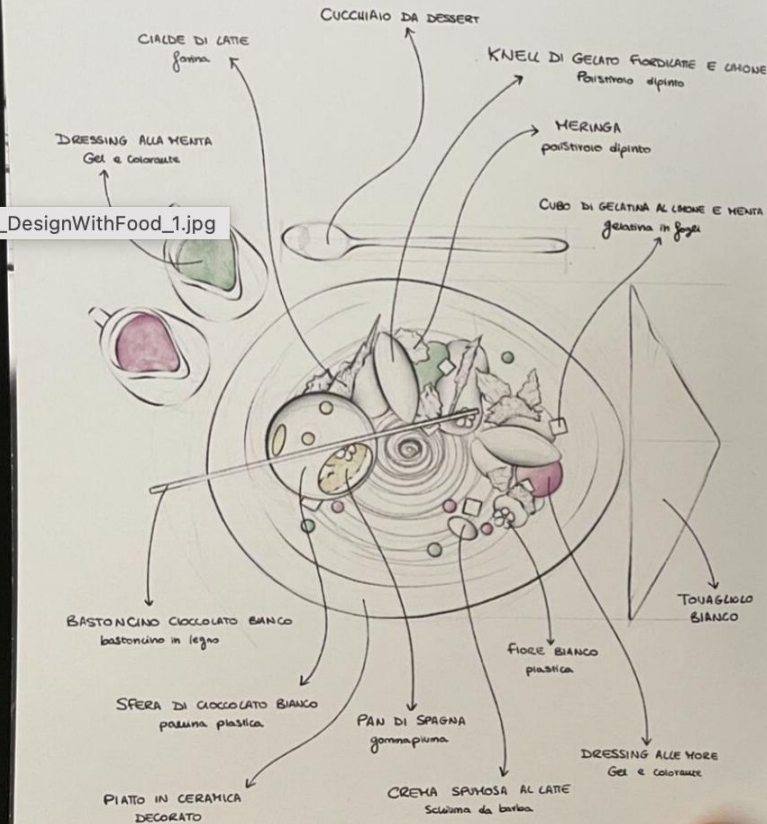 CUCCHIAIO DA DESSERT
CIALDE DI LATTE
farina
KNELL DI GELATO FIORDILATTE E LIMONE
Polistirolo dipinto
DRESSING ALLA MENTA
Gel e colorante
MERINGA
polistirolo dipinto
CUBO DI GELATINA AL LIMONE E MENTA
gelatina in fogli
_DesignWithFood_1.jpg
TOVAGLIOLO
BIANCO
BASTONCINO CIOCCOLATO BIANCO
bastoncino in legno
FIORE BIANCO
plastica
SFERA DI CIOCCOLATO BIANCO
pallina plastica
PAN DI SPAGNA
gommapiuma
DRESSING ALLE MORE
Gel e colorante
PIATTO IN CERAMICA
DECORATO
CREMA SPUMOSA AL LATTE
Schiuma da barba